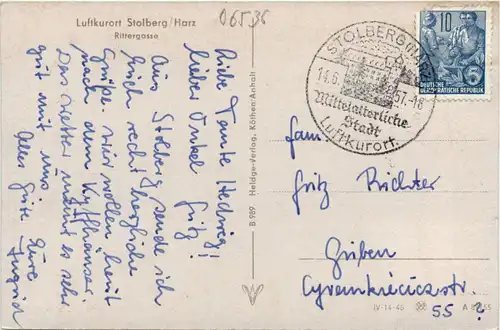 Luftkurort Stolberg/Harz
Rittergasse
06536
Liebe Tante Hedwig!
lieber Onkel Fritz!
Aus Stolberg sende ich
Euch recht herzliche
Grüße. Wir wollen heut
nach dem Kyffhäuser.
Das Wetter meint es sehr
gut mit uns.
Alles Gute Eure
Ingrid
B 989 Heldge-Verlag, Köthen/Anhalt
STOLBERG (HARZ)
14.6.57.-18
Mittelalterliche
Stadt
Luftkurort
10
DEUTSCHE
DEMOKRATISCHE REPUBLIK
Fam.
Fritz Richter
Guben
Cyrankiewiczstr.
55 ?
IV-14-45 A